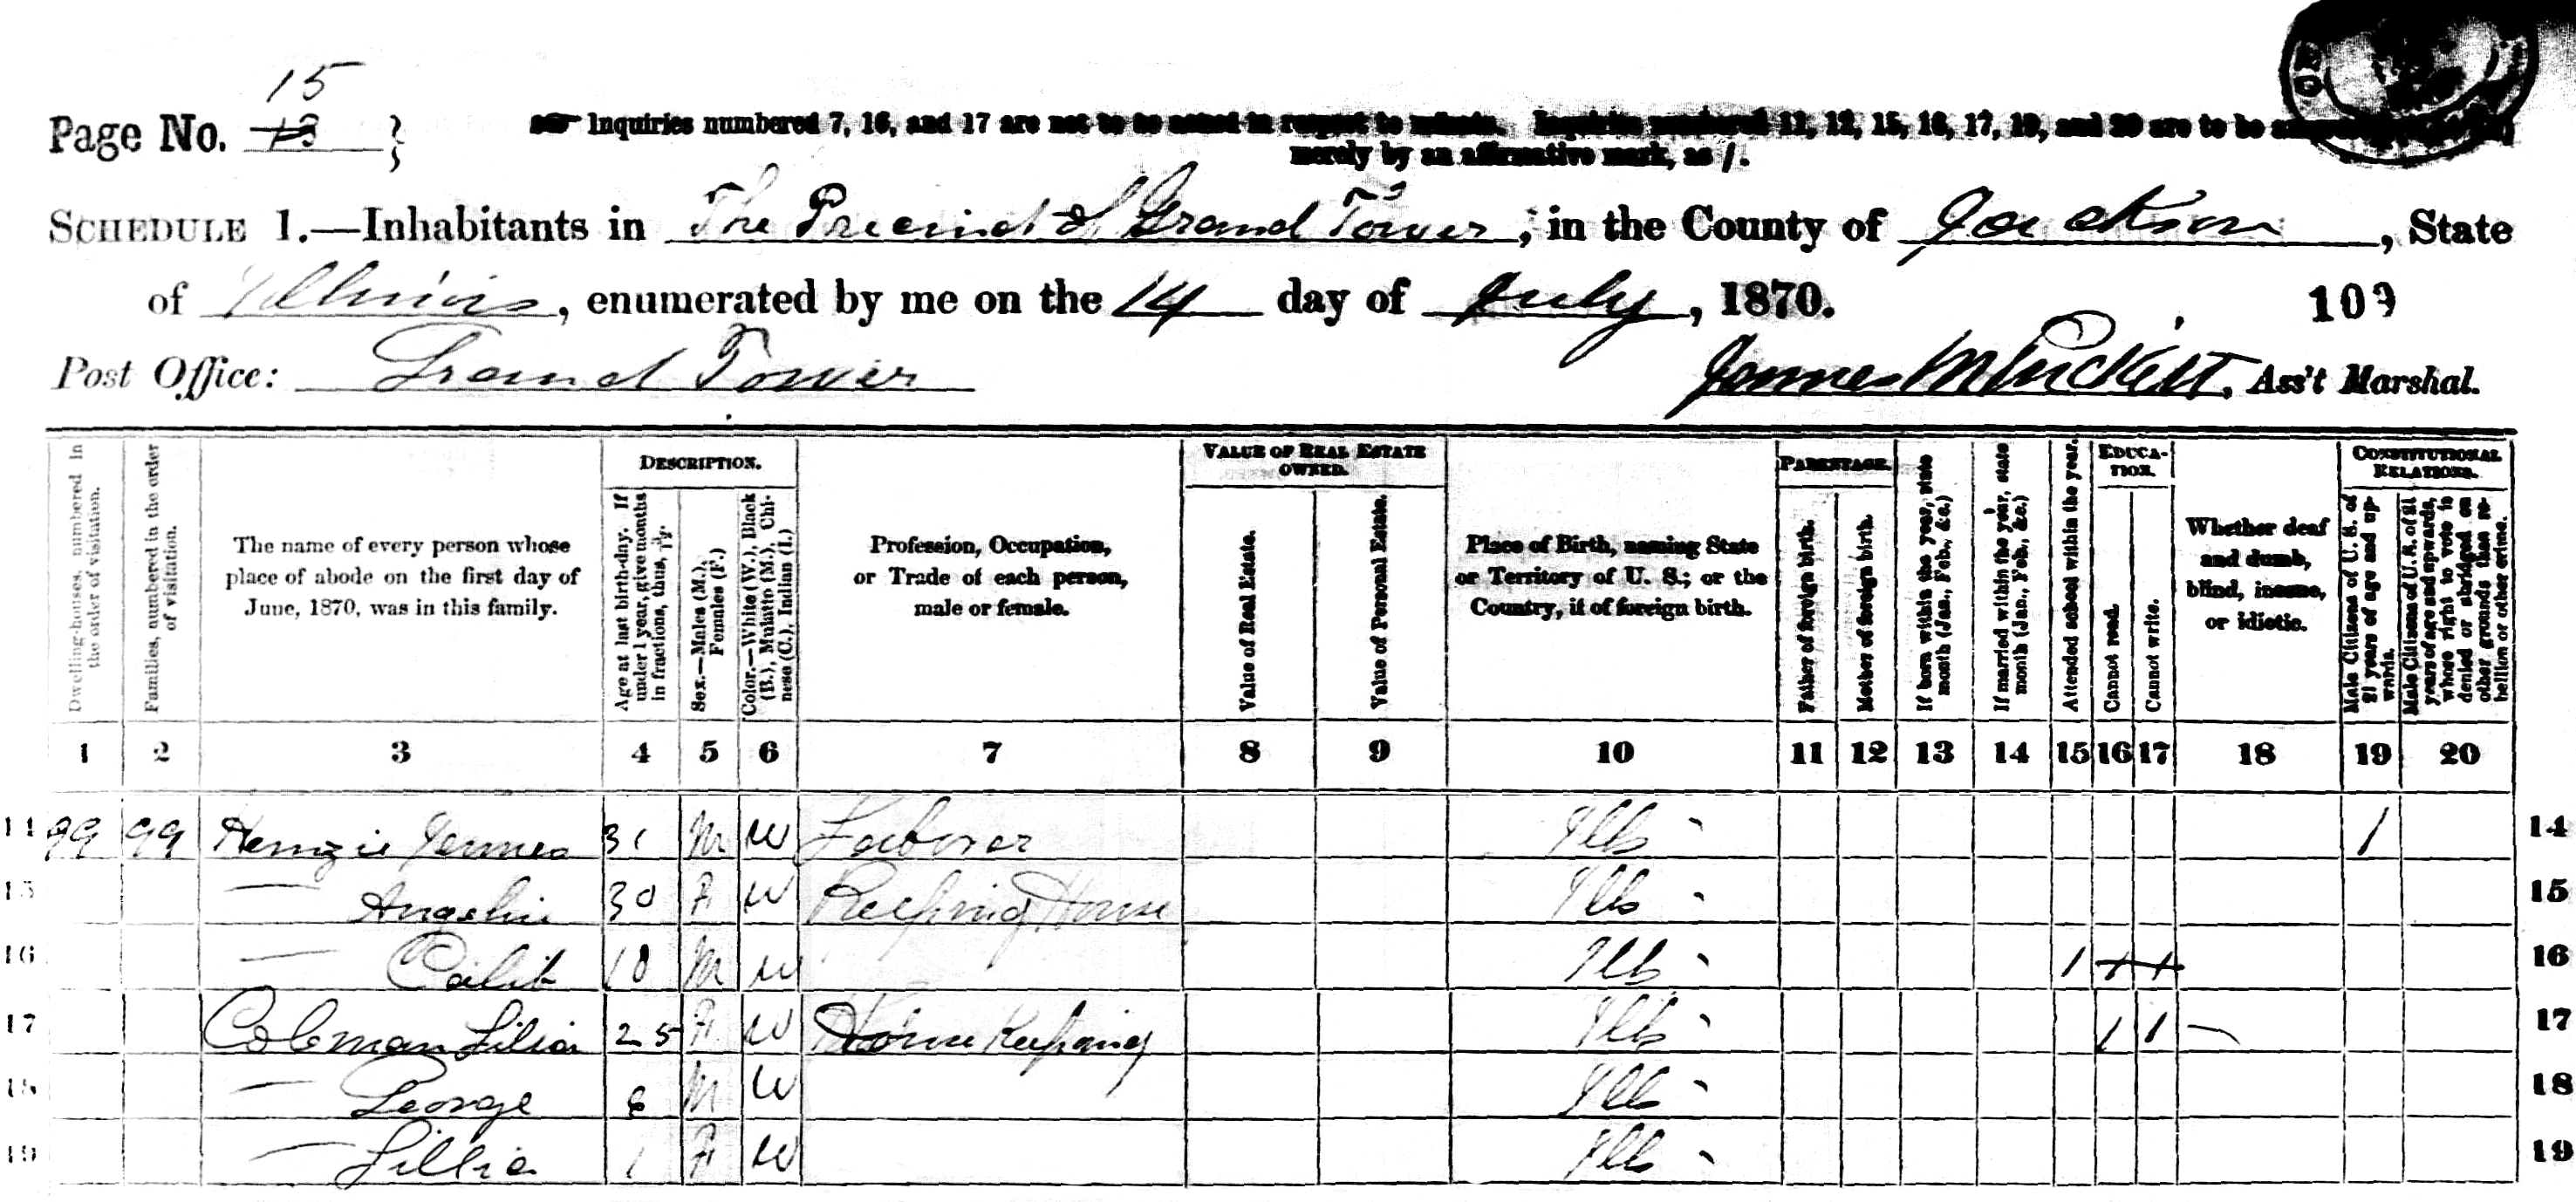 15
Page No. 13
Inquiries numbered 7, 16, and 17 are not to be asked in respect to infants. Inquiries numbered 11, 12, 15, 16, 17, 19, and 20 are to be
merely by an affirmative mark, as /.
SCHEDULE 1.—Inhabitants in The Precinct of Grand Tower, in the County of Jackson, State
of Illinois, enumerated by me on the 14 day of July, 1870.
109
Post Office: Grand Tower
James M Puckett, Ass't Marshal.
DESCRIPTION. VALUE OF REAL ESTATE OWNED. PARENTAGE. EDUCATION. CONSTITUTIONAL RELATIONS.
Dwelling-houses, numbered in the order of visitation.
Families, numbered in the order of visitation.
The name of every person whose place of abode on the first day of June, 1870, was in this family.
Age at last birth-day. If under 1 year, give months in fractions, thus,
Sex.—Males (M.), Females (F.)
Color.—White (W.), Black (B.), Mulatto (M.), Chinese (C.), Indian (I.)
Profession, Occupation, or Trade of each person, male or female.
Value of Real Estate.
Value of Personal Estate.
Place of Birth, naming State or Territory of U. S.; or the Country, if of foreign birth.
Father of foreign birth.
Mother of foreign birth.
If born within the year, state month (Jan., Feb., &c.)
If married within the year, state month (Jan., Feb., &c.)
Attended school within the year.
Cannot read.
Cannot write.
Whether deaf and dumb, blind, insane, or idiotic.
Male Citizens of U. S. of 21 years of age and upwards.
Male Citizens of U. S. of 21 years of age and upwards, whose right to vote is denied or abridged on other grounds than rebellion or other crime.
1 2 3 4 5 6 7 8 9 10 11 12 13 14 15 16 17 18 19 20
14 99 99 Henzie James 31 M W Laborer Ills 1 14
15 — Angelin 30 F W Keeping House Ills 15
16 — Calib 10 M W Ills 1 1 1 16
17 Coleman Lilia 25 F W House Keeping Ills 1 1 17
18 — George 6 M W Ills 18
19 — Lillie 1 F W Ills 19